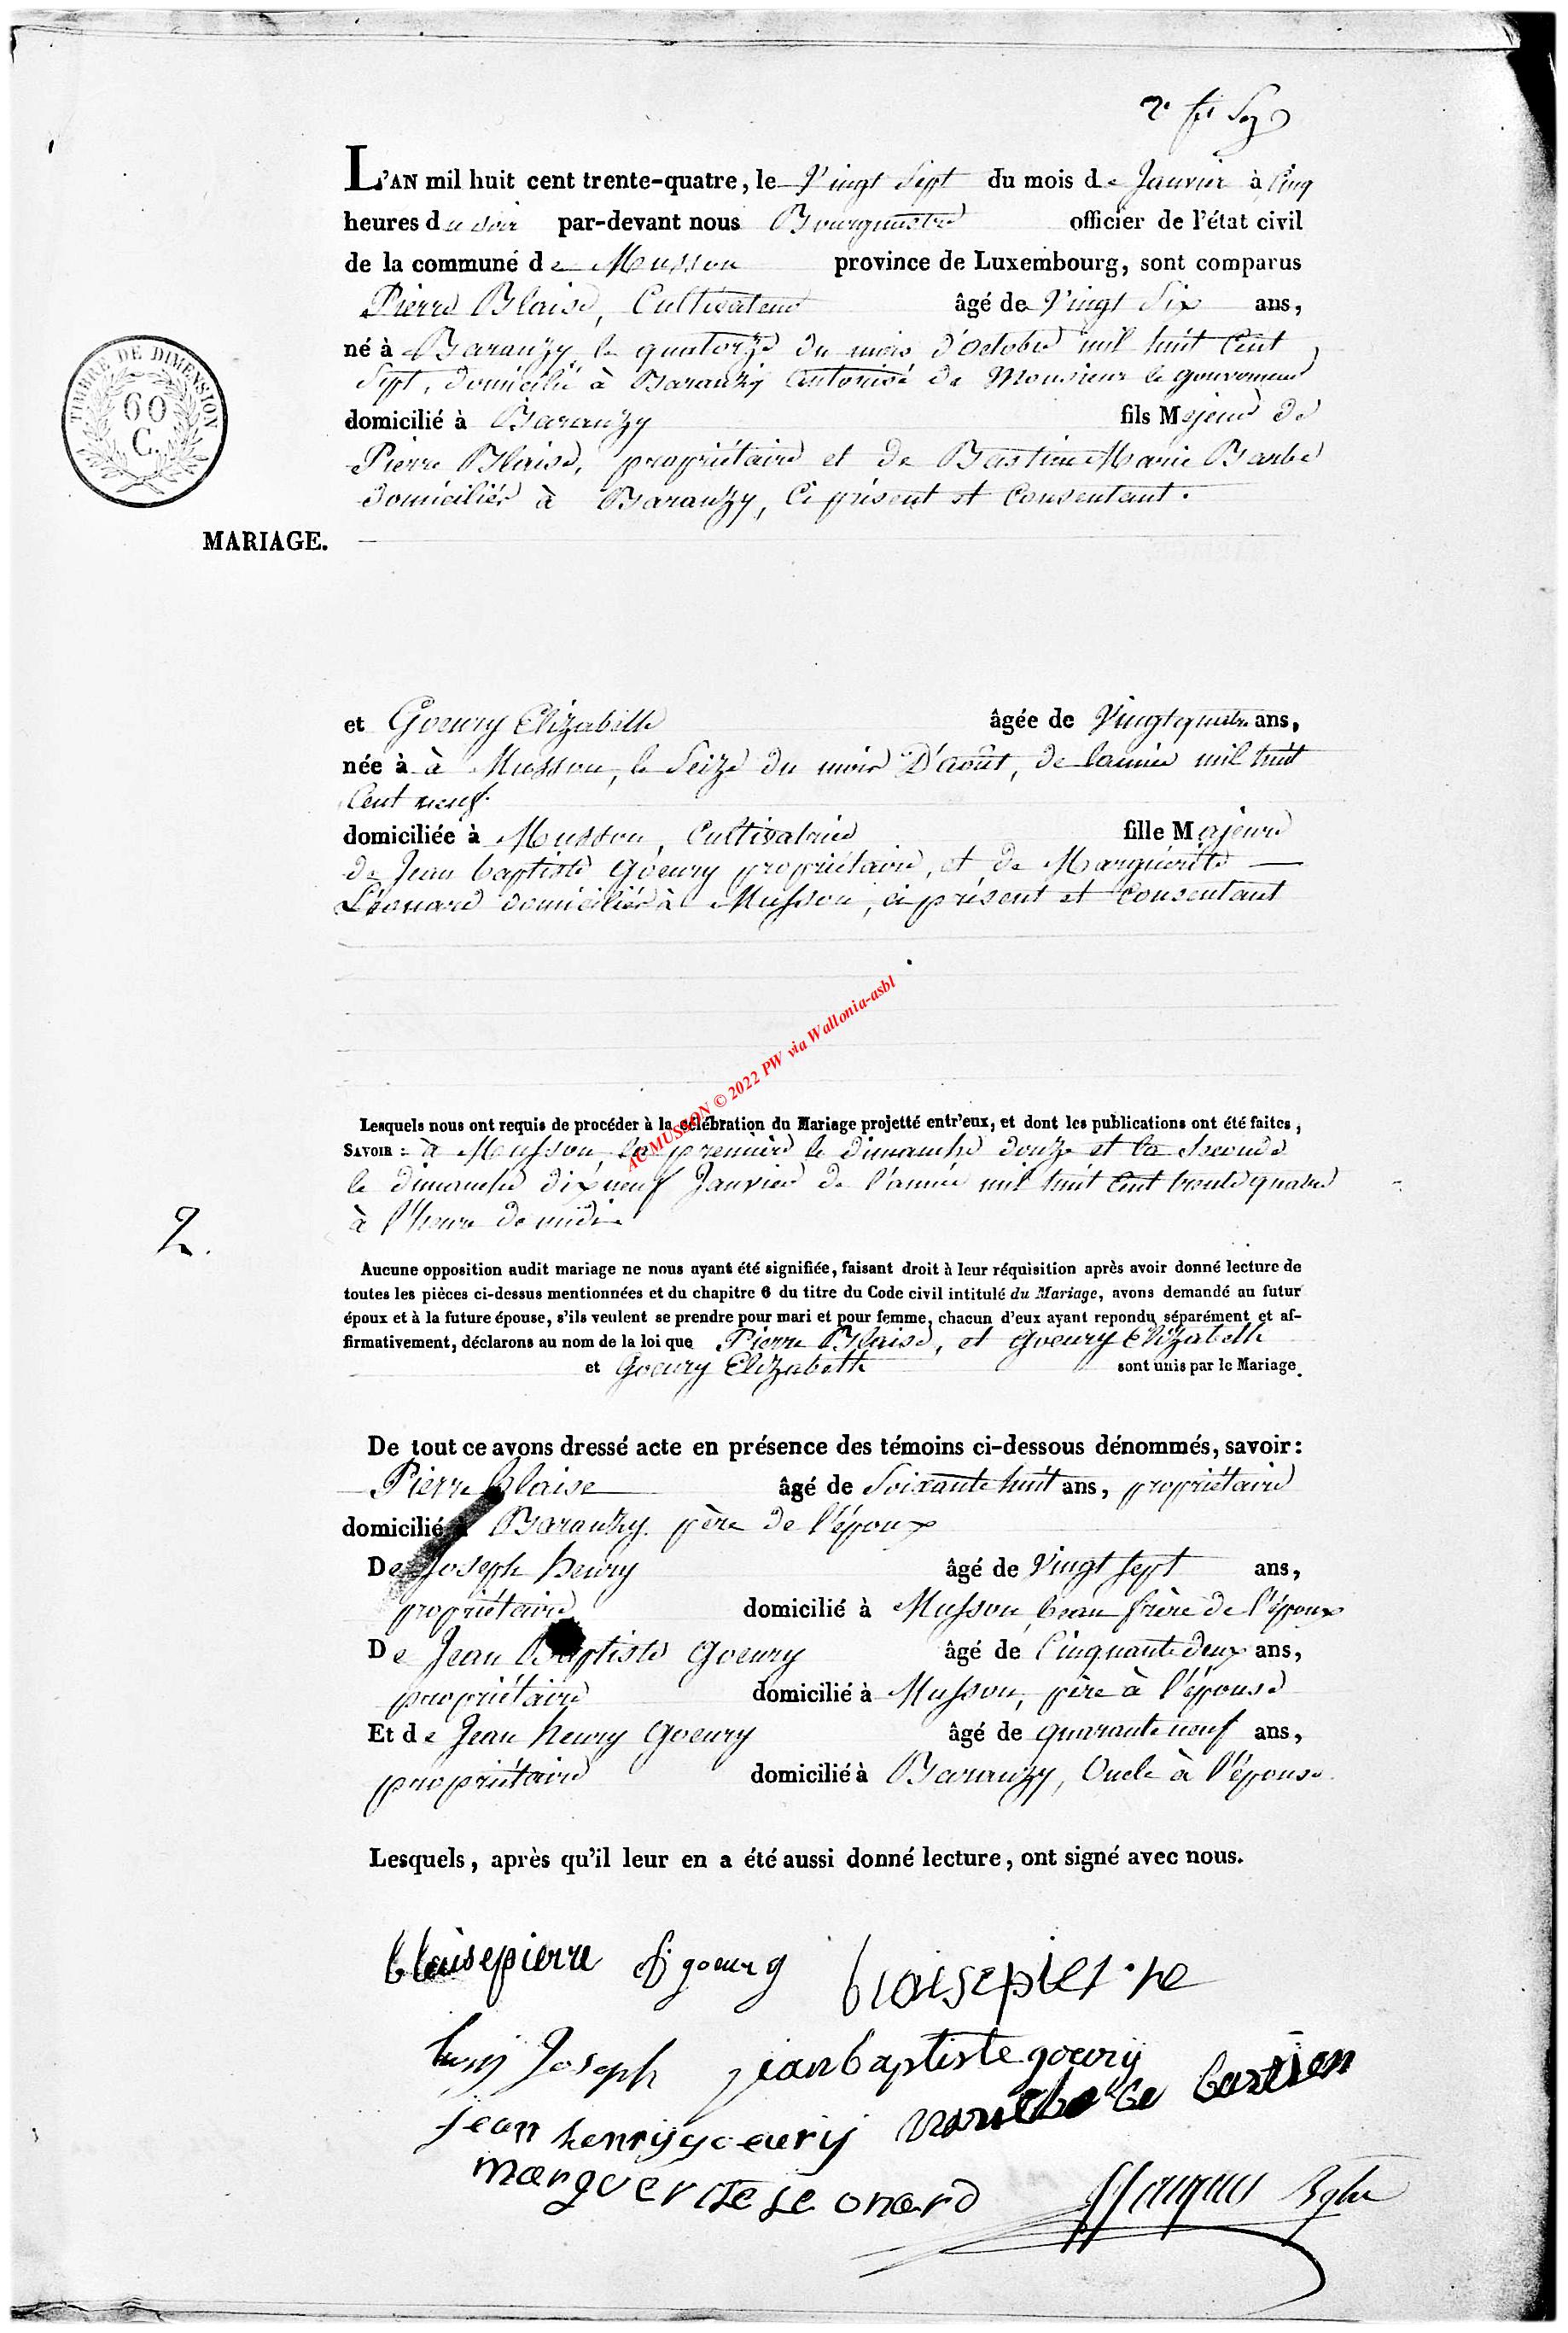 L'AN mil huit cent trente-quatre, le Vingt Sept du mois de Janvier à Cinq
heures du soir par-devant nous Bourgmestre officier de l'état civil
de la commune de Musson province de Luxembourg, sont comparus
Pierre Blaise, Cultivateur âgé de Vingt Six ans,
né à Baranzy, le quatorze du mois d'octobre mil huit Cent
Sept, domicilié à Baranzy autorisé de Monsieur le gouverneur
domicilié à Baranzy fils Majeur de
Pierre Blaise, propriétaire et de Bastien Marie Barbe
domiciliés à Baranzy, Ci présent et Consentant.
TIMBRE DE DIMENSION
60
C.
MARIAGE.
et Goeury Elizabeth âgée de Vingtquatre ans,
née à à Musson, le Seize du mois D'août, de l'année mil huit
Cent neuf.
domiciliée à Musson, Cultivatrice fille Majeure
de Jean baptiste Goeury propriétaire, et de Marguerite
Léonard domiciliés à Musson, ci présent et Consentant
AC MUSSON © 2022 PW via Wallonia-asbl
Lesquels nous ont requis de procéder à la célébration du Mariage projetté entr'eux, et dont les publications ont été faites,
SAVOIR : à Musson, la première le dimanche douze et la Seconde
le dimanche dixneuf Janvier de l'année mil huit Cent trente quatre
à l'heure de midi
2.
Aucune opposition audit mariage ne nous ayant été signifiée, faisant droit à leur réquisition après avoir donné lecture de
toutes les pièces ci-dessus mentionnées et du chapitre 6 du titre du Code civil intitulé du Mariage, avons demandé au futur
époux et à la future épouse, s'ils veulent se prendre pour mari et pour femme, chacun d'eux ayant repondu séparément et af-
firmativement, déclarons au nom de la loi que Pierre Blaise, et Goeury Elizabeth
et Goeury Elizabeth sont unis par le Mariage.
De tout ce avons dressé acte en présence des témoins ci-dessous dénommés, savoir:
Pierre blaise âgé de Soixante huit ans, propriétaire
domicilié à Baranzy. père de l'époux
De Joseph henry âgé de Vingt sept ans,
propriétaire domicilié à Musson, beau frère de l'époux
De Jean Baptiste Goeury âgé de Cinquante Deux ans,
propriétaire domicilié à Musson, père à l'épouse
Et de Jean henry Goeury âgé de quarante neuf ans,
propriétaire domicilié à Baranzy, Oncle à l'épouse
Lesquels, après qu'il leur en a été aussi donné lecture, ont signé avec nous.
blaisepierre goeury blaisepierre
henry Joseph jeanbaptiste goeury
jean henry goeury bastien
marguerite leonard